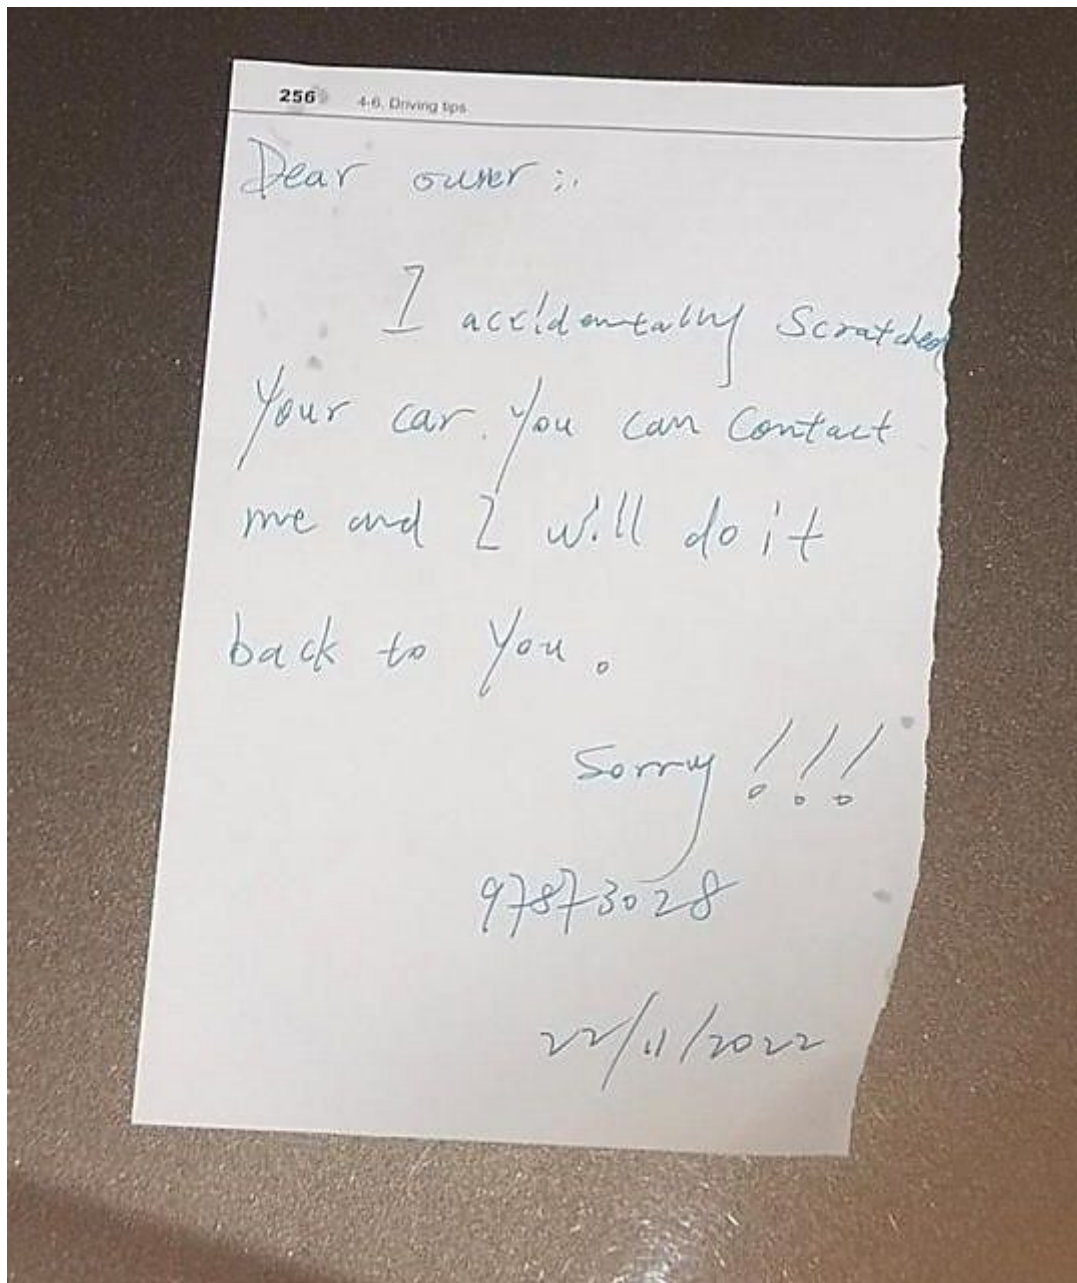 256 4-6. Driving tips
Dear owner :.
I accidentally Scratched
Your car. You can Contact
me and I will do it
back to You.
Sorry !!!
97873028
22/11/2022